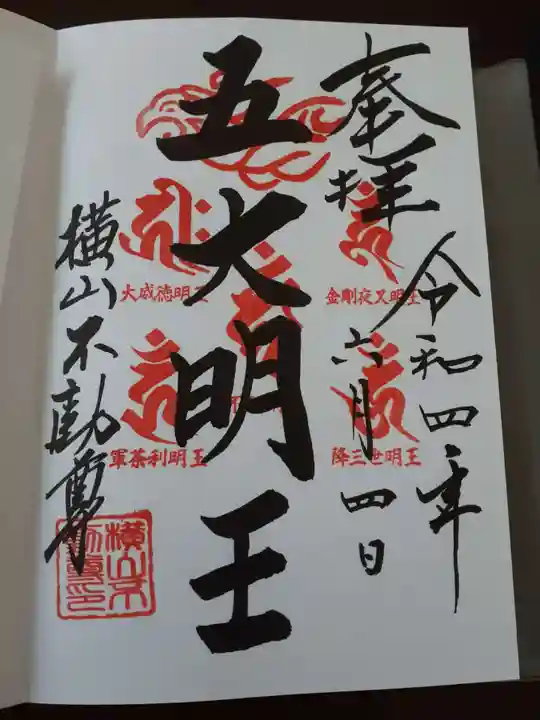 奉拝
令和四年
六月四日
五大明王
金剛夜叉明王
降三世明王
大威徳明王
軍荼利明王
横山不動尊